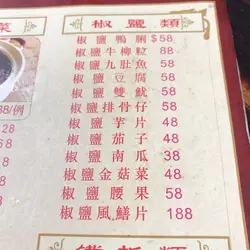 菜
椒鹽類
椒鹽鴨脷 $58
椒鹽牛柳粒 88
椒鹽九肚魚 58
椒鹽豆腐 58
椒鹽雙魷 58
椒鹽排骨仔 58
椒鹽芋片 48
椒鹽茄子 48
椒鹽南瓜 38
椒鹽金菇菜 48
椒鹽腰果 58
椒鹽風鱔片 188
38/例
28
8
8
8